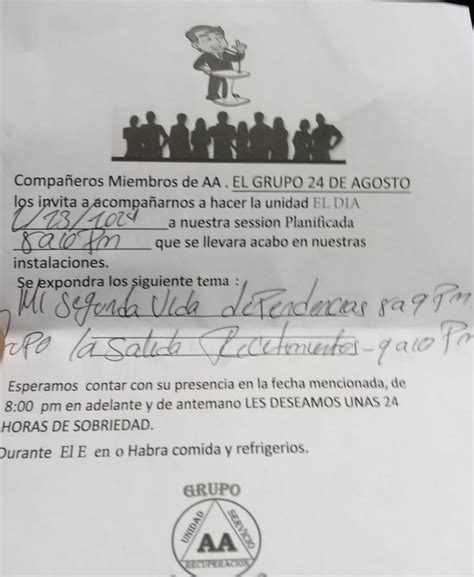 Compañeros Miembros de AA . EL GRUPO 24 DE AGOSTO
los invita a acompañarnos a hacer la unidad EL DIA
1/23/2024 a nuestra session Planificada
8 a 10 Pm que se llevara acabo en nuestras
instalaciones.
Se expondra los siguiente tema :
Mi segunda Vida dependencias 8 a 9 Pm
la Salida - 9 a 10 Pm
Esperamos contar con su presencia en la fecha mencionada, de
8:00 pm en adelante y de antemano LES DESEAMOS UNAS 24
HORAS DE SOBRIEDAD.
Durante El E en o Habra comida y refrigerios.
GRUPO
UNIDAD
SERVICIO
AA
RECUPERACION